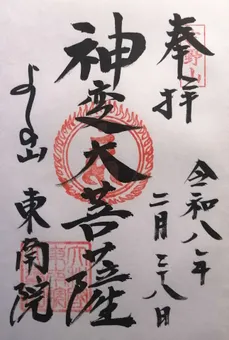 奉拝
令和八年
二月二十八日
神変大菩薩
よしの山
東南院